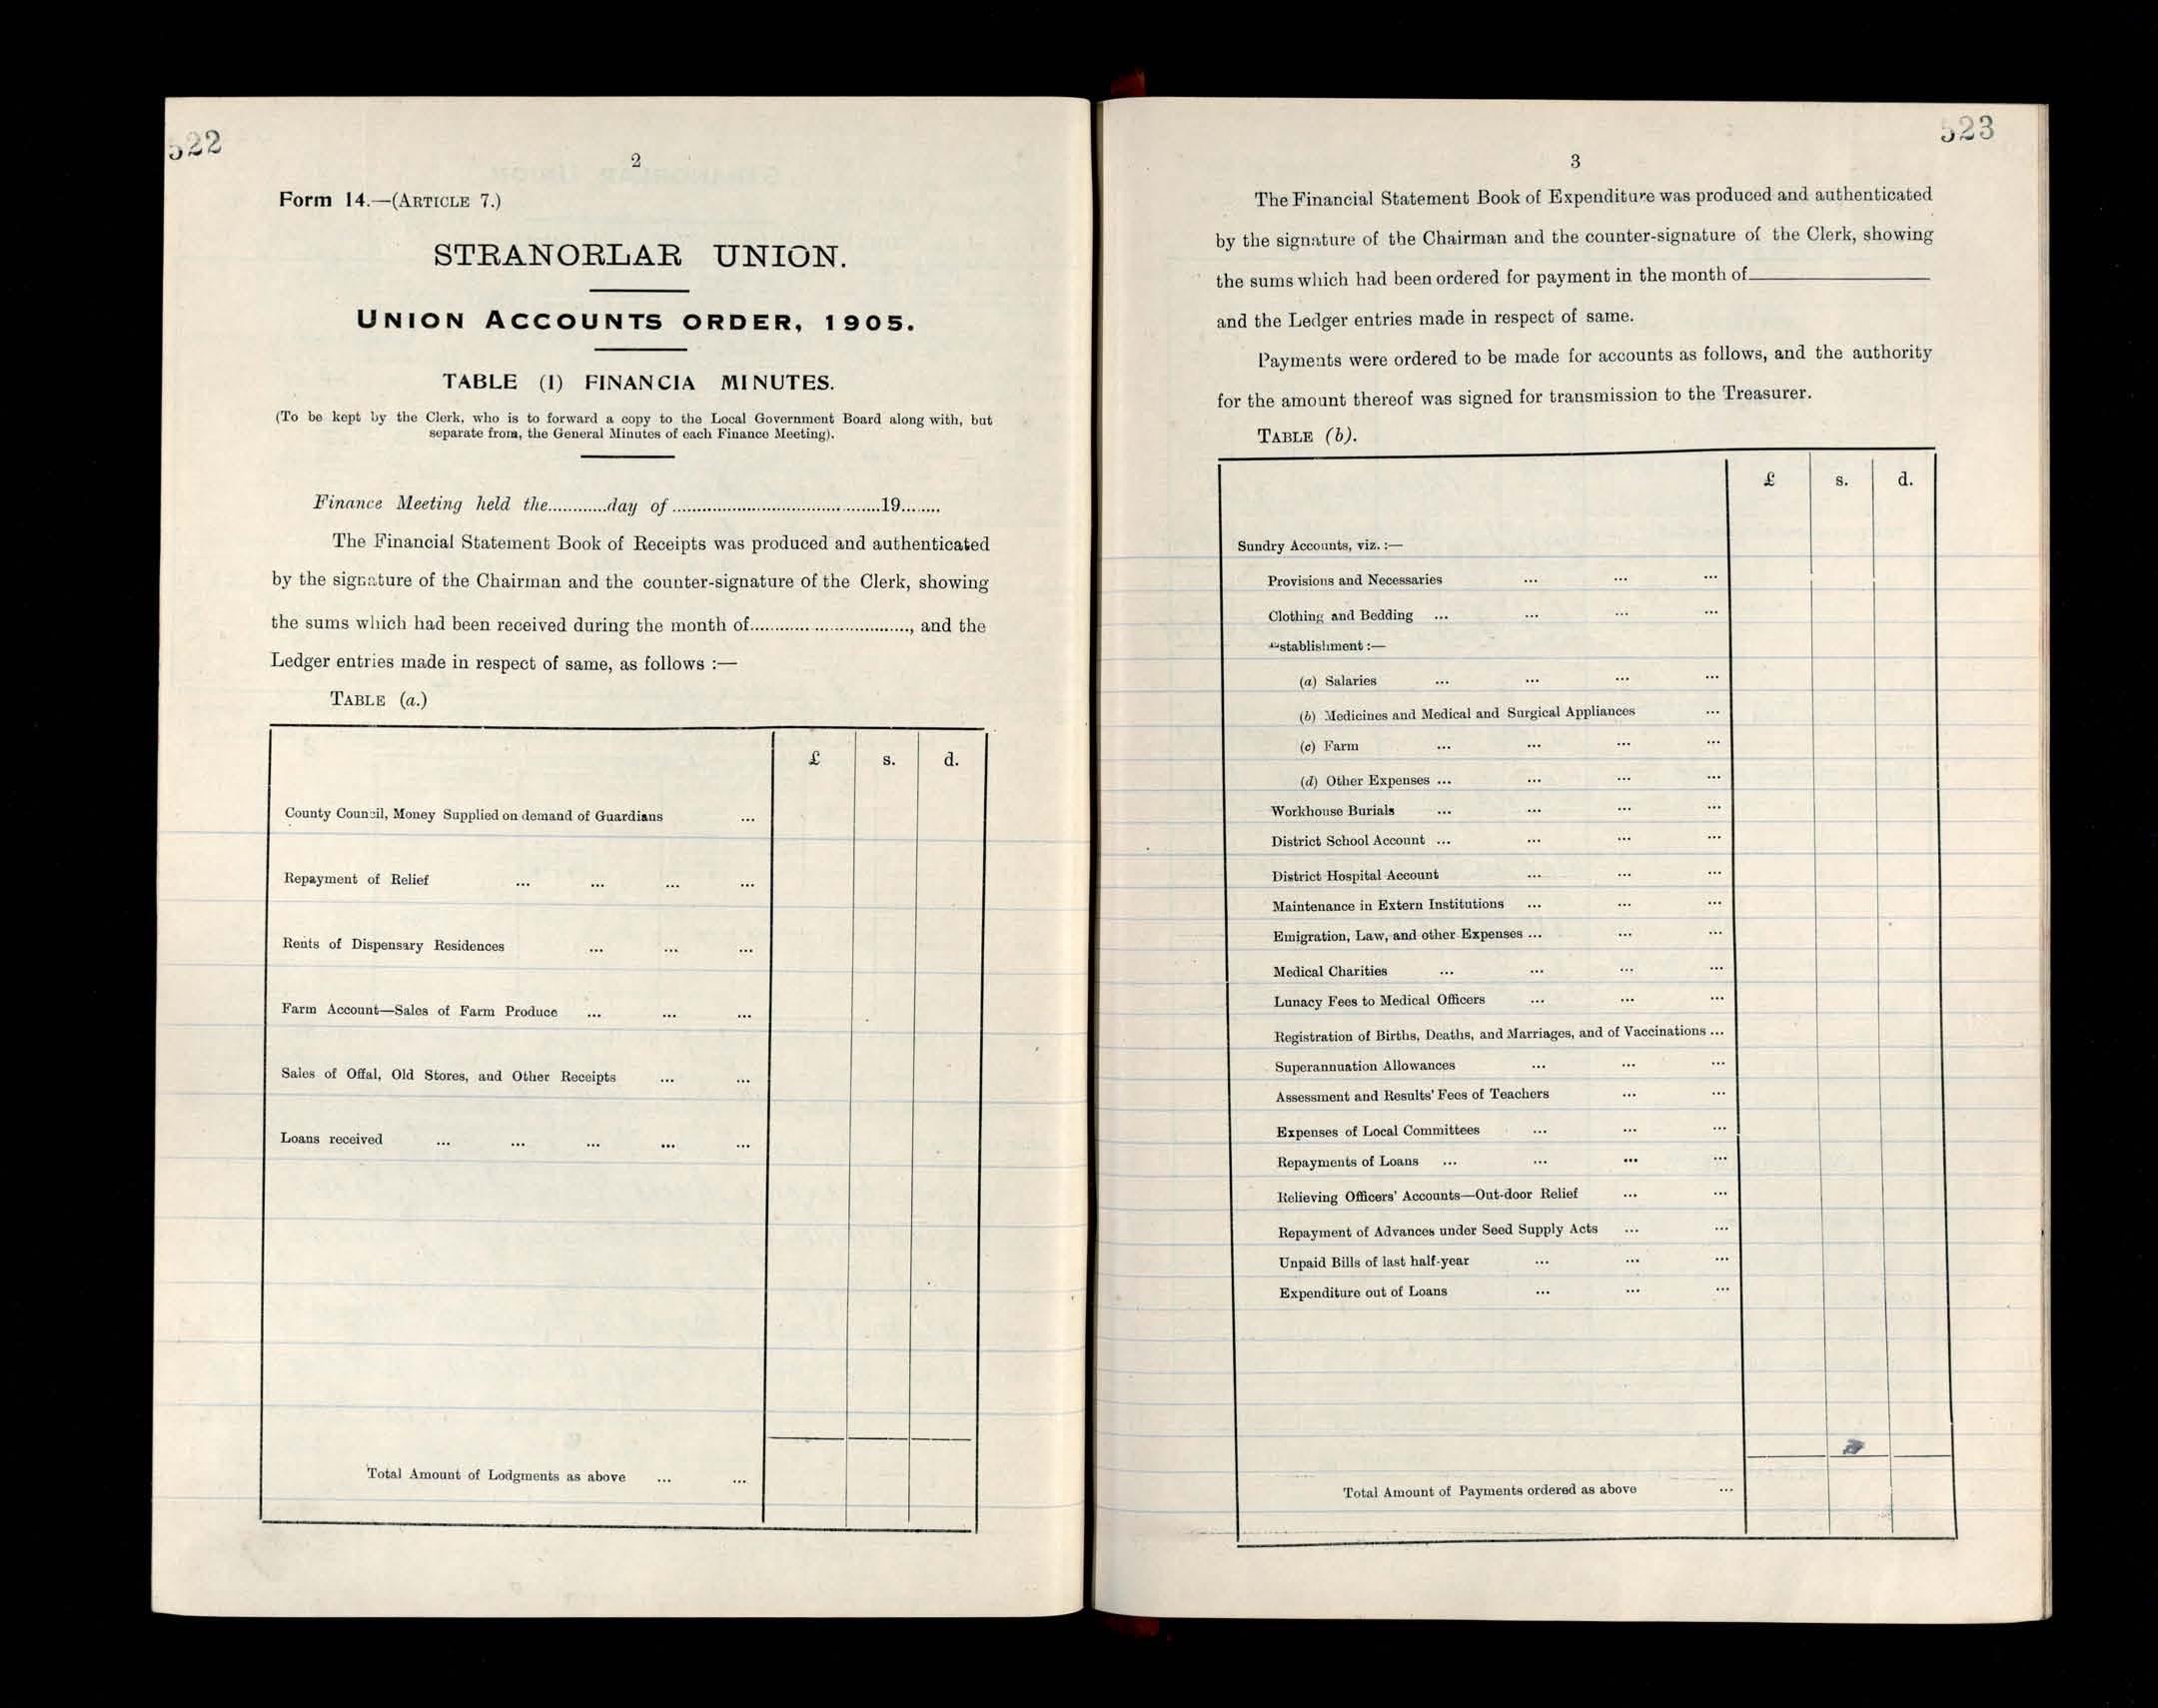 522
2
Form 14.—(ARTICLE 7.)
STRANORLAR UNION.
UNION ACCOUNTS ORDER, 1905.
TABLE (I) FINANCIA MINUTES.
(To be kept by the Clerk, who is to forward a copy to the Local Government Board along with, but
separate from, the General Minutes of each Finance Meeting).
Finance Meeting held the............day of...........................................19........
The Financial Statement Book of Receipts was produced and authenticated
by the signature of the Chairman and the counter-signature of the Clerk, showing
the sums which had been received during the month of................................., and the
Ledger entries made in respect of same, as follows :—
TABLE (a.)
£ s. d.
County Council, Money Supplied on demand of Guardians ...
Repayment of Relief ... ... ... ...
Rents of Dispensary Residences ... ... ...
Farm Account—Sales of Farm Produce ... ... ...
Sales of Offal, Old Stores, and Other Receipts ... ...
Loans received ... ... ... ... ...
Total Amount of Lodgments as above ... ...
523
3
The Financial Statement Book of Expenditure was produced and authenticated
by the signature of the Chairman and the counter-signature of the Clerk, showing
the sums which had been ordered for payment in the month of
and the Ledger entries made in respect of same.
Payments were ordered to be made for accounts as follows, and the authority
for the amount thereof was signed for transmission to the Treasurer.
TABLE (b).
£ s. d.
Sundry Accounts, viz. :—
Provisions and Necessaries ... ... ...
Clothing and Bedding ... ... ... ...
Establishment :—
(a) Salaries ... ... ... ...
(b) Medicines and Medical and Surgical Appliances ...
(c) Farm ... ... ... ...
(d) Other Expenses ... ... ... ...
Workhouse Burials ... ... ... ...
District School Account ... ... ... ...
District Hospital Account ... ... ...
Maintenance in Extern Institutions ... ... ...
Emigration, Law, and other Expenses ... ... ...
Medical Charities ... ... ... ...
Lunacy Fees to Medical Officers ... ... ...
Registration of Births, Deaths, and Marriages, and of Vaccinations ...
Superannuation Allowances ... ... ...
Assessment and Results' Fees of Teachers ... ...
Expenses of Local Committees ... ... ...
Repayments of Loans ... ... ... ...
Relieving Officers' Accounts—Out-door Relief ... ...
Repayment of Advances under Seed Supply Acts ... ...
Unpaid Bills of last half-year ... ... ...
Expenditure out of Loans ... ... ...
Total Amount of Payments ordered as above ...